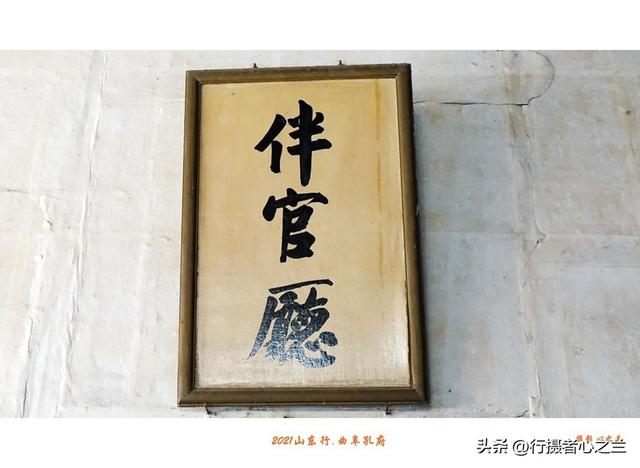 伴
官
廳
2021山东行.曲阜孔府
摄影 心之兰
头条 @行摄者心之兰